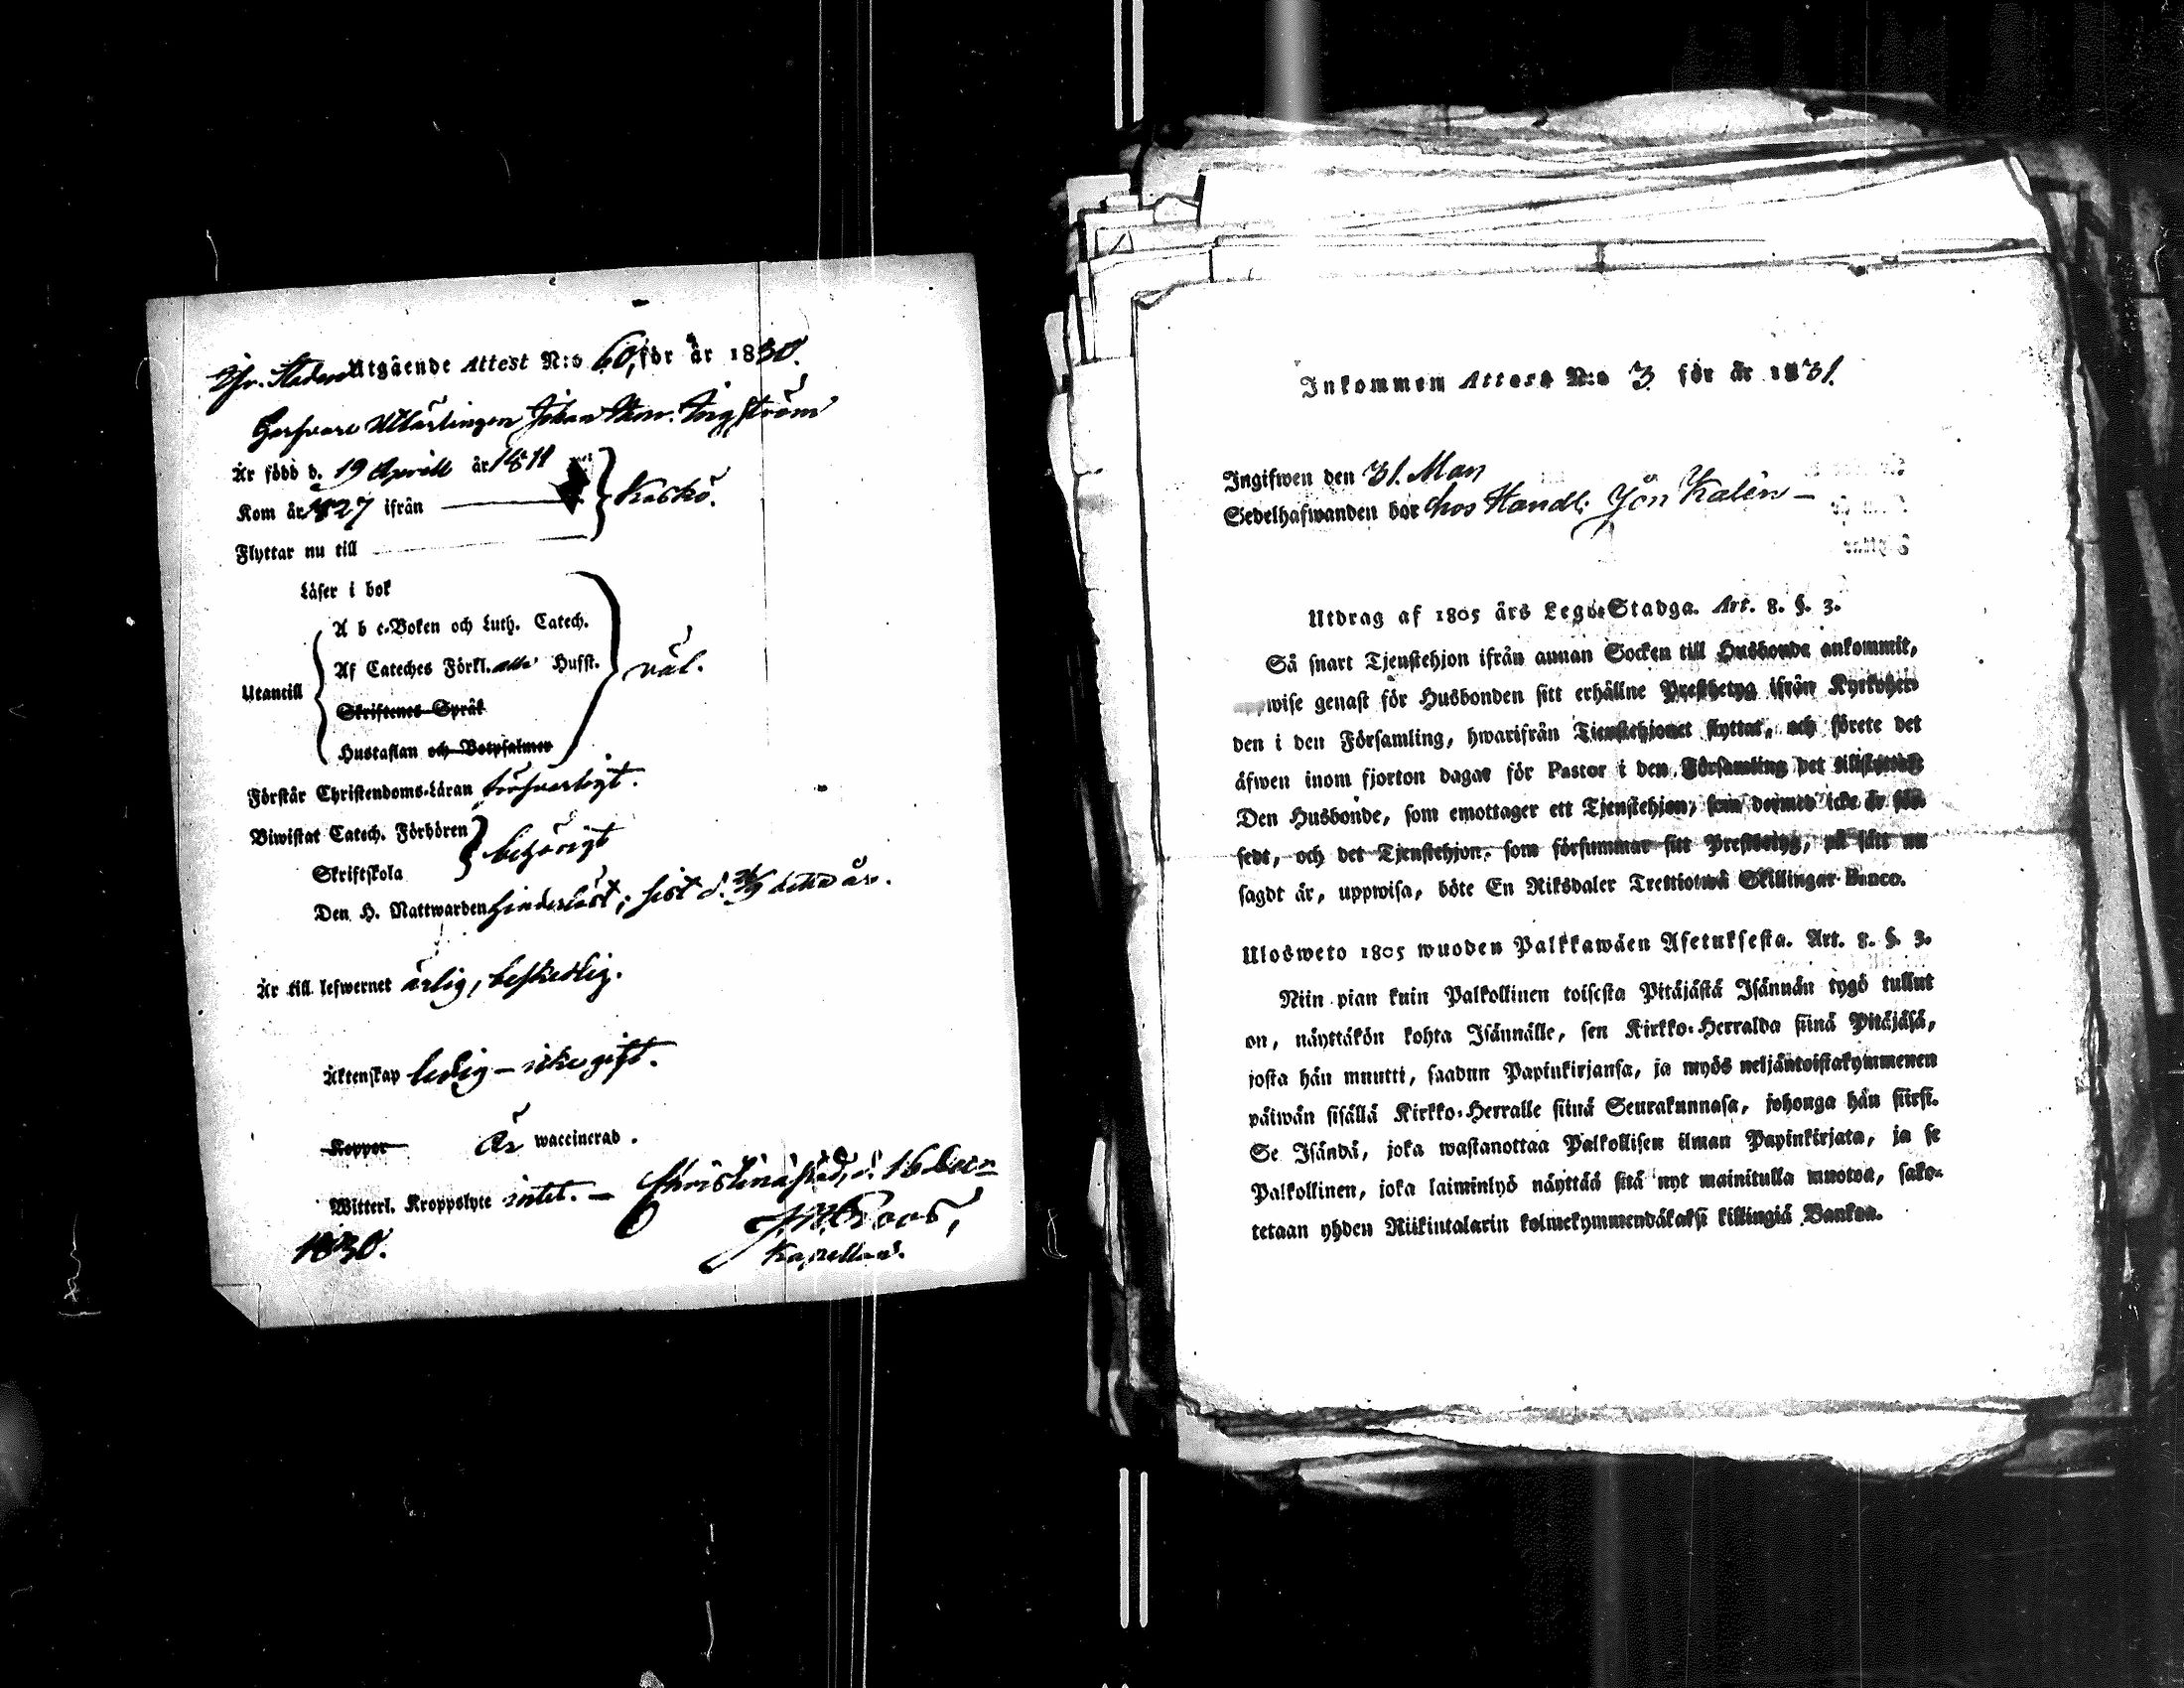 Utgående Attest N:o 60, för år 1830.
Garfvare Utlärlingen Johan Ingström
Är född d. 19 Aprill år 1811
Kom år 1827 ifrån
Kaskö.
Flyttar nu till
Läser i bok
A b c-Boken och Luth. Catech.
Af Cateches Förkl. alla Husst.
väl.
Utantill
Skriftenes Språk
Hustaflan och Botpsalmer
Förstår Christendoms-Läran försvarligt.
Biwistat Catech. Förhören
behörigt
Skriftskola
Den H. Nattwarden hinderlöst; sist d. detta år.
Är till lefwernet ärlig, beskedlig.
Äktenskap ledig – icke gift.
Koppor Är waccinerad.
Witterl. Kroppslyte intet. — Christinæstad, d. 16 Decr
1830.
Kapellan.
Inkommen Attest N:o 3 för år 1831.
Ingifwen den 31. Man
Sedelhafwanden bor hos Handl. Jön Kalin –
Utdrag af 1805 års Lego-Stadga. Art. 8. §. 3.
Så snart Tjenstehjon ifrån annan Socken till Husbonde ankommit,
wise genast för Husbonden sitt erhållne Prestbetyg ifrån Kyrkoher-
den i den Församling, hwarifrån Tjenstehjonet flyttat, och förete det
äfwen inom fjorton dagar för Pastor i den Församling det tillflyttat
Den Husbonde, som emottager ett Tjenstehjon, som dermed icke är för-
sedt, och det Tjenstehjon, som försummar sitt Prestbetyg, på sätt nu
sagdt är, uppwisa, böte En Riksdaler Trettiotwå Skillingar Banco.
Ulosweto 1805 wuoden Palkkawäen Asetuksesta. Art. 8. §. 3.
Niin pian kuin Palkollinen toisesta Pitäjästä Isännän tygö tullut
on, näyttäkön kohta Isännälle, sen Kirkko-Herralda siinä Pitäjäsä,
josta hän muutti, saadun Papinkirjansa, ja myös neljäntoistakymmenen
päiwän sisällä Kirkko-Herralle siinä Seurakunnasa, johonga hän siirsi.
Se Isändä, joka wastanottaa Palkollisen ilman Papinkirjata, ja se
Palkollinen, joka laiminlyö näyttää sitä nyt mainitulla muotoa, sako-
tetaan yhden Riikintalarin kolmekymmendäkaksi killingiä Bankoa.